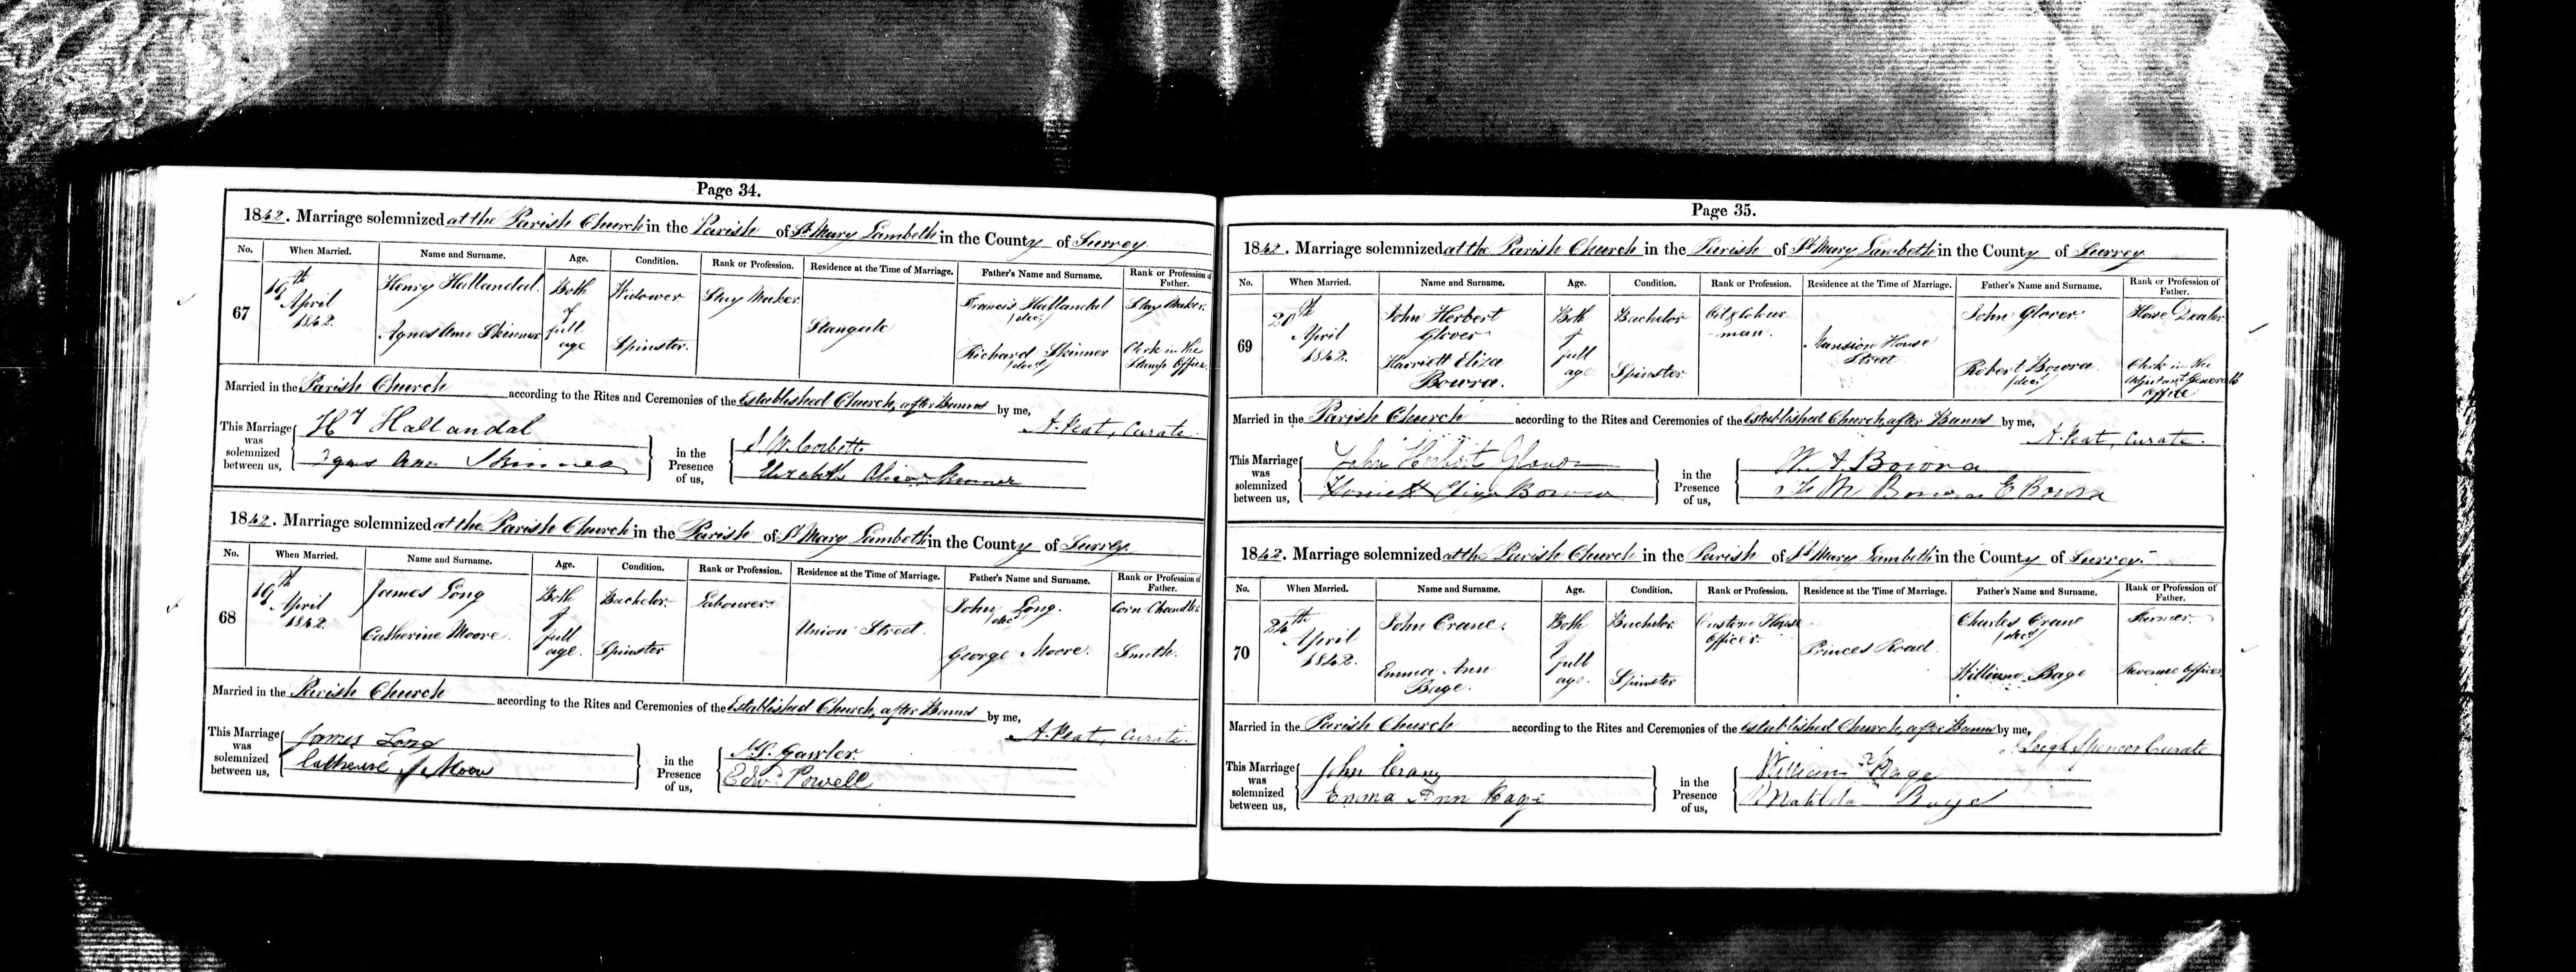 Page 34.
1842. Marriage solemnized at the Parish Church in the Parish of St Mary Lambeth in the County of Surrey
No. When Married. Name and Surname. Age. Condition. Rank or Profession. Residence at the Time of Marriage. Father's Name and Surname. Rank or Profession of Father.
67 19th April 1842. Henry Hallandal. Both of full age Widower Stay Maker. Stangate Francis Hallandal (decd) Stay Maker.
Agnes Ann Skinner Spinster. Richard Skinner (decd) Clerk in the Stamp Office.
Married in the Parish Church according to the Rites and Ceremonies of the Established Church, after Banns by me,
A. Peat, Curate.
This Marriage was solemnized between us, Hy Hallandal
Agnes Ann Skinner
in the Presence of us, W. Corbett
Elizabeth Skinner
1842. Marriage solemnized at the Parish Church in the Parish of St Mary Lambeth in the County of Surrey.
No. When Married. Name and Surname. Age. Condition. Rank or Profession. Residence at the Time of Marriage. Father's Name and Surname. Rank or Profession of Father.
68 19th April 1842. James Long Both of full age. Bachelor. Labourer. Union Street. John Long. (dec) Corn Chandler.
Catherine Moore. Spinster George Moore. Smith.
Married in the Parish Church according to the Rites and Ceremonies of the Established Church, after Banns by me,
A. Peat, Curate.
This Marriage was solemnized between us, James Long
Catherine Moore
in the Presence of us, Gawler.
Edwd Powell
Page 35.
1842. Marriage solemnized at the Parish Church in the Parish of St Mary Lambeth in the County of Surrey
No. When Married. Name and Surname. Age. Condition. Rank or Profession. Residence at the Time of Marriage. Father's Name and Surname. Rank or Profession of Father.
69 20th April 1842. John Herbert Glover Both of full age Bachelor Oil & Colour man. Mansion House Street John Glover. Horse Dealer
Harriett Eliza Bowra. Spinster. Robert Bowra. (dec) Clerk in the Adjutant Generals Office
Married in the Parish Church according to the Rites and Ceremonies of the Established Church, after Banns by me,
A. Peat, Curate.
This Marriage was solemnized between us, John Herbert Glover
Harriett Eliza Bowra
in the Presence of us, Bowra
E Bowra
1842. Marriage solemnized at the Parish Church in the Parish of St Mary Lambeth in the County of Surrey.
No. When Married. Name and Surname. Age. Condition. Rank or Profession. Residence at the Time of Marriage. Father's Name and Surname. Rank or Profession of Father.
70 24th April 1842. John Crane. Both of full age. Bachelor Custom House Officer. Princes Road Charles Crane (decd) Farmer.
Emma Ann Bage. Spinster William Bage Revenue Officer
Married in the Parish Church according to the Rites and Ceremonies of the Established Church, after Banns by me,
Leigh Spencer Curate
This Marriage was solemnized between us, John Crane
Emma Ann Bage
in the Presence of us, William Bage
Matilda Bage